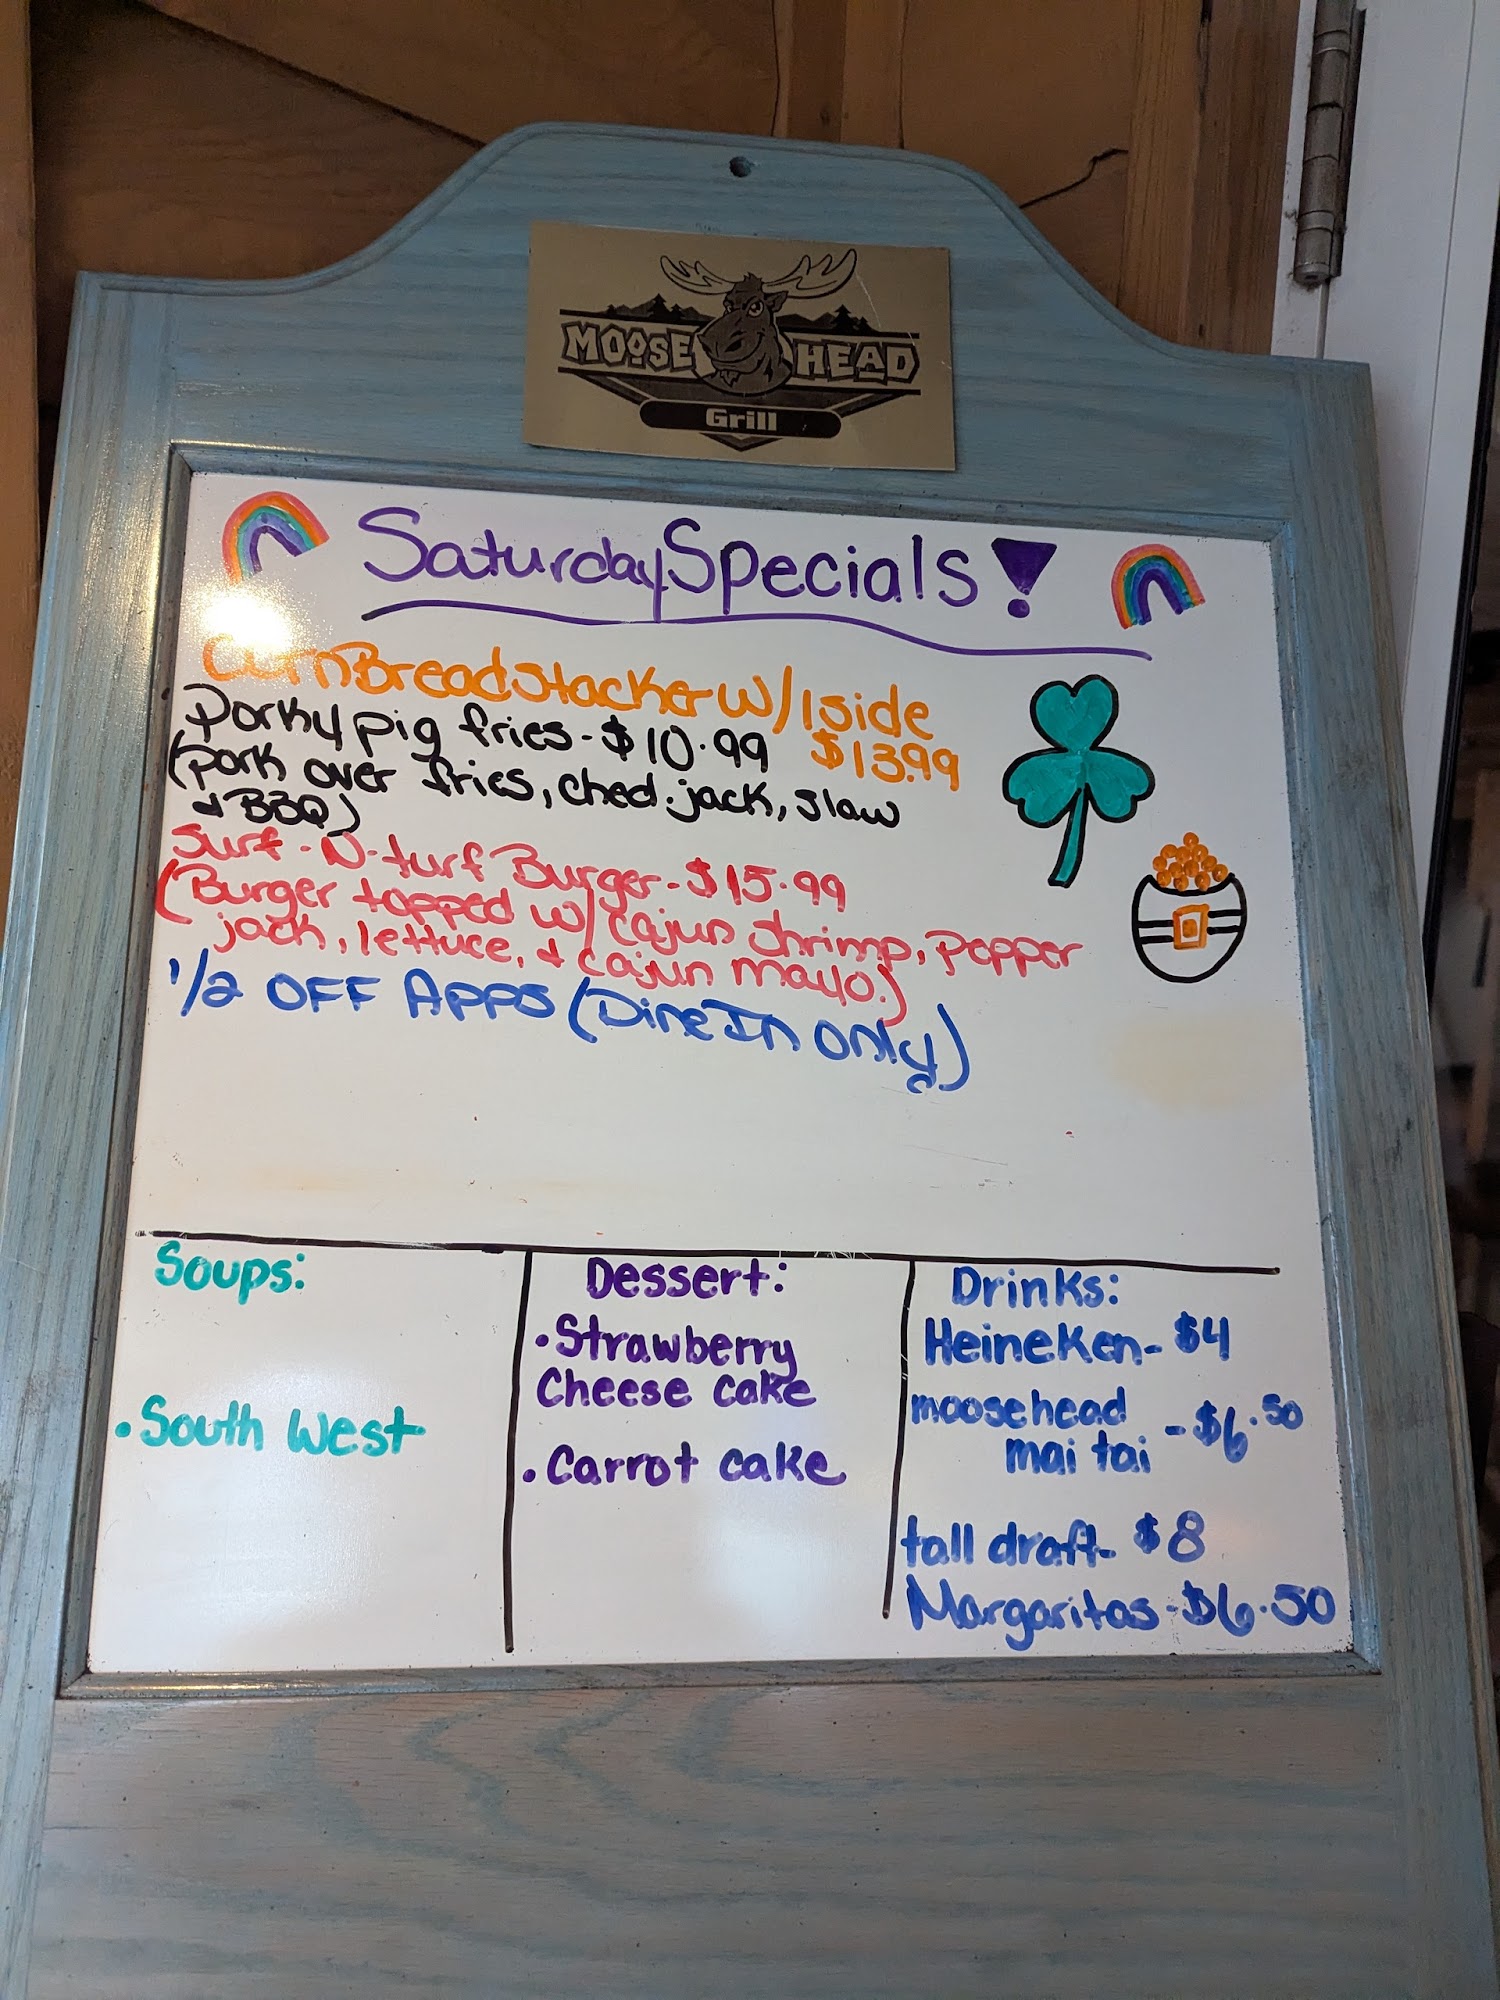 MOOSE HEAD
Grill
Saturday Specials!
CornBread Stacker w/ 1 side
$13.99
Porky pig fries - $10.99
(pork over fries, ched. jack, slaw
& BBQ)
Surf-N-turf Burger - $15.99
(Burger topped w/ cajun shrimp, pepper
jack, lettuce, & cajun mayo.)
1/2 OFF Apps (Dine In only)
Soups:
• South West
Dessert:
• Strawberry
Cheese cake
• Carrot cake
Drinks:
Heineken - $4
moosehead
mai tai - $6.50
tall draft - $8
Margaritas - $6.50